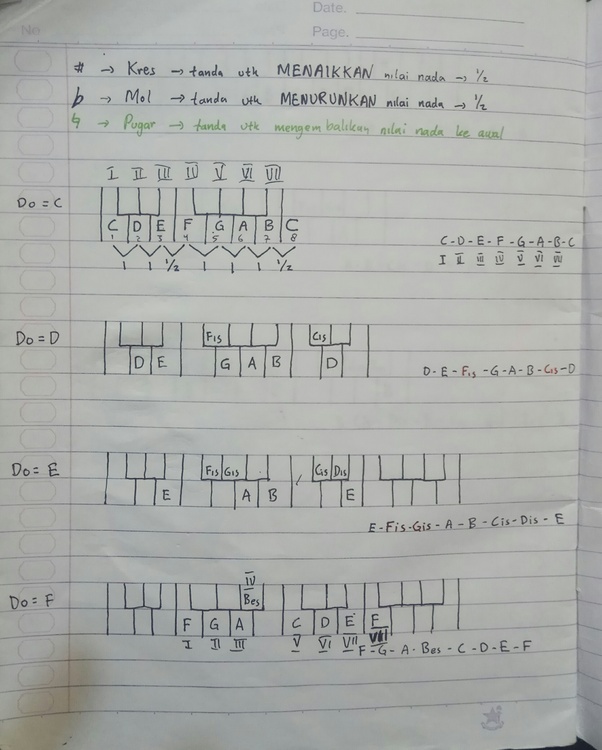 Date.
No
Page.
# → Kres → tanda utk MENAIKKAN nilai nada → 1/2
b → Mol → tanda utk MENURUNKAN nilai nada → 1/2
♮ → Pugar → tanda utk mengembalikan nilai nada ke awal
I II III IV V VI VII
Do = C
C D E F G A B C
1 2 3 4 5 6 7 8
1 1 1/2 1 1 1 1/2
C - D - E - F - G - A - B - C
I II III IV V VI VII
Do = D
Fis Cis
D E G A B D
D - E - Fis - G - A - B - Cis - D
Do = E
Fis Gis Cis Dis
E A B E
E - Fis - Gis - A - B - Cis - Dis - E
IV
Do = F
Bes
F G A C D E F
I II III V VI VII VIII
F - G - A - Bes - C - D - E - F